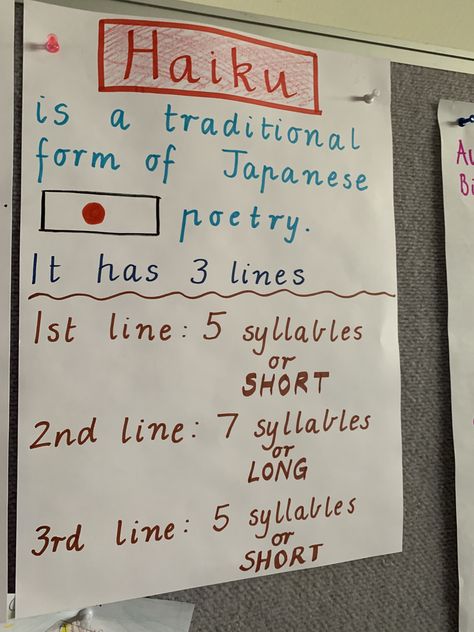 Haiku
is a traditional
form of Japanese
poetry.
It has 3 lines
1st line: 5 syllables
or
SHORT
2nd line: 7 syllables
or
LONG
3rd line: 5 syllables
or
SHORT
Au
Bi